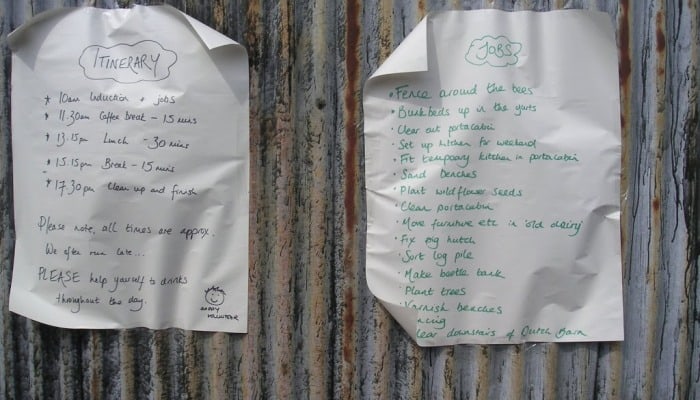 ITINERARY
* 10am Induction + jobs
* 11.30am Coffee break - 15 mins
* 13.15pm Lunch - 30 mins
* 15.15pm Break - 15 mins
* 17.30pm Clean up and finish
Please note, all times are approx.
We often run late...
PLEASE help yourself to drinks
throughout the day.
HAPPY
VOLUNTEER
JOBS
• Fence around the bees
• Bunkbeds up in the yurts
• Clear out portacabin
• Set up kitchen for weekend
• Fit temporary kitchen in portacabin
• Sand benches
• Plant wildflower seeds
• Clean portacabin
• Move furniture etc in 'old dairy'
• Fix pig hutch
• Sort log pile
• Make beetle bank
• Plant trees
• Varnish benches
ncing
lear downstairs of Dutch Barn